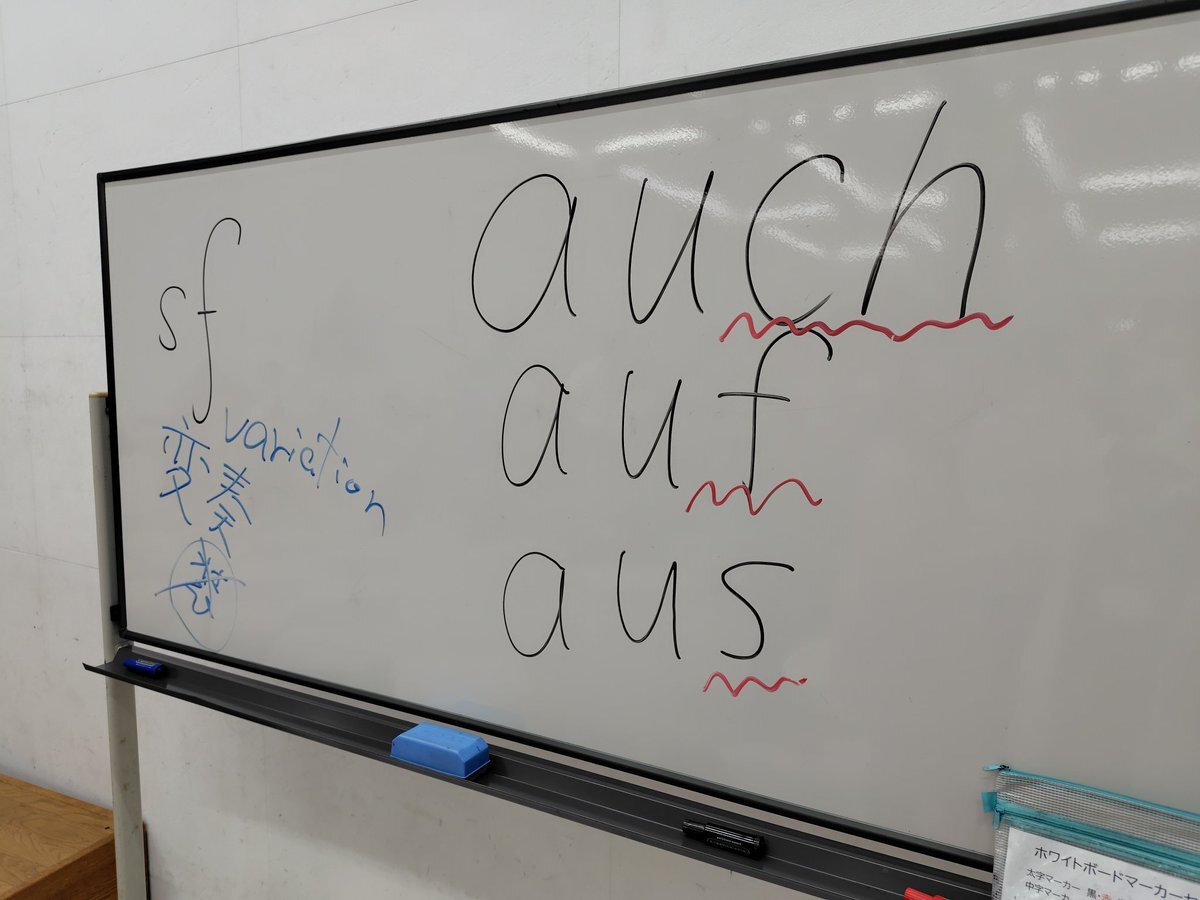 sf
variation
変奏
auch
auf
aus
ホワイトボードマーカーセ
太字マーカー 黒・赤
中字マーカ